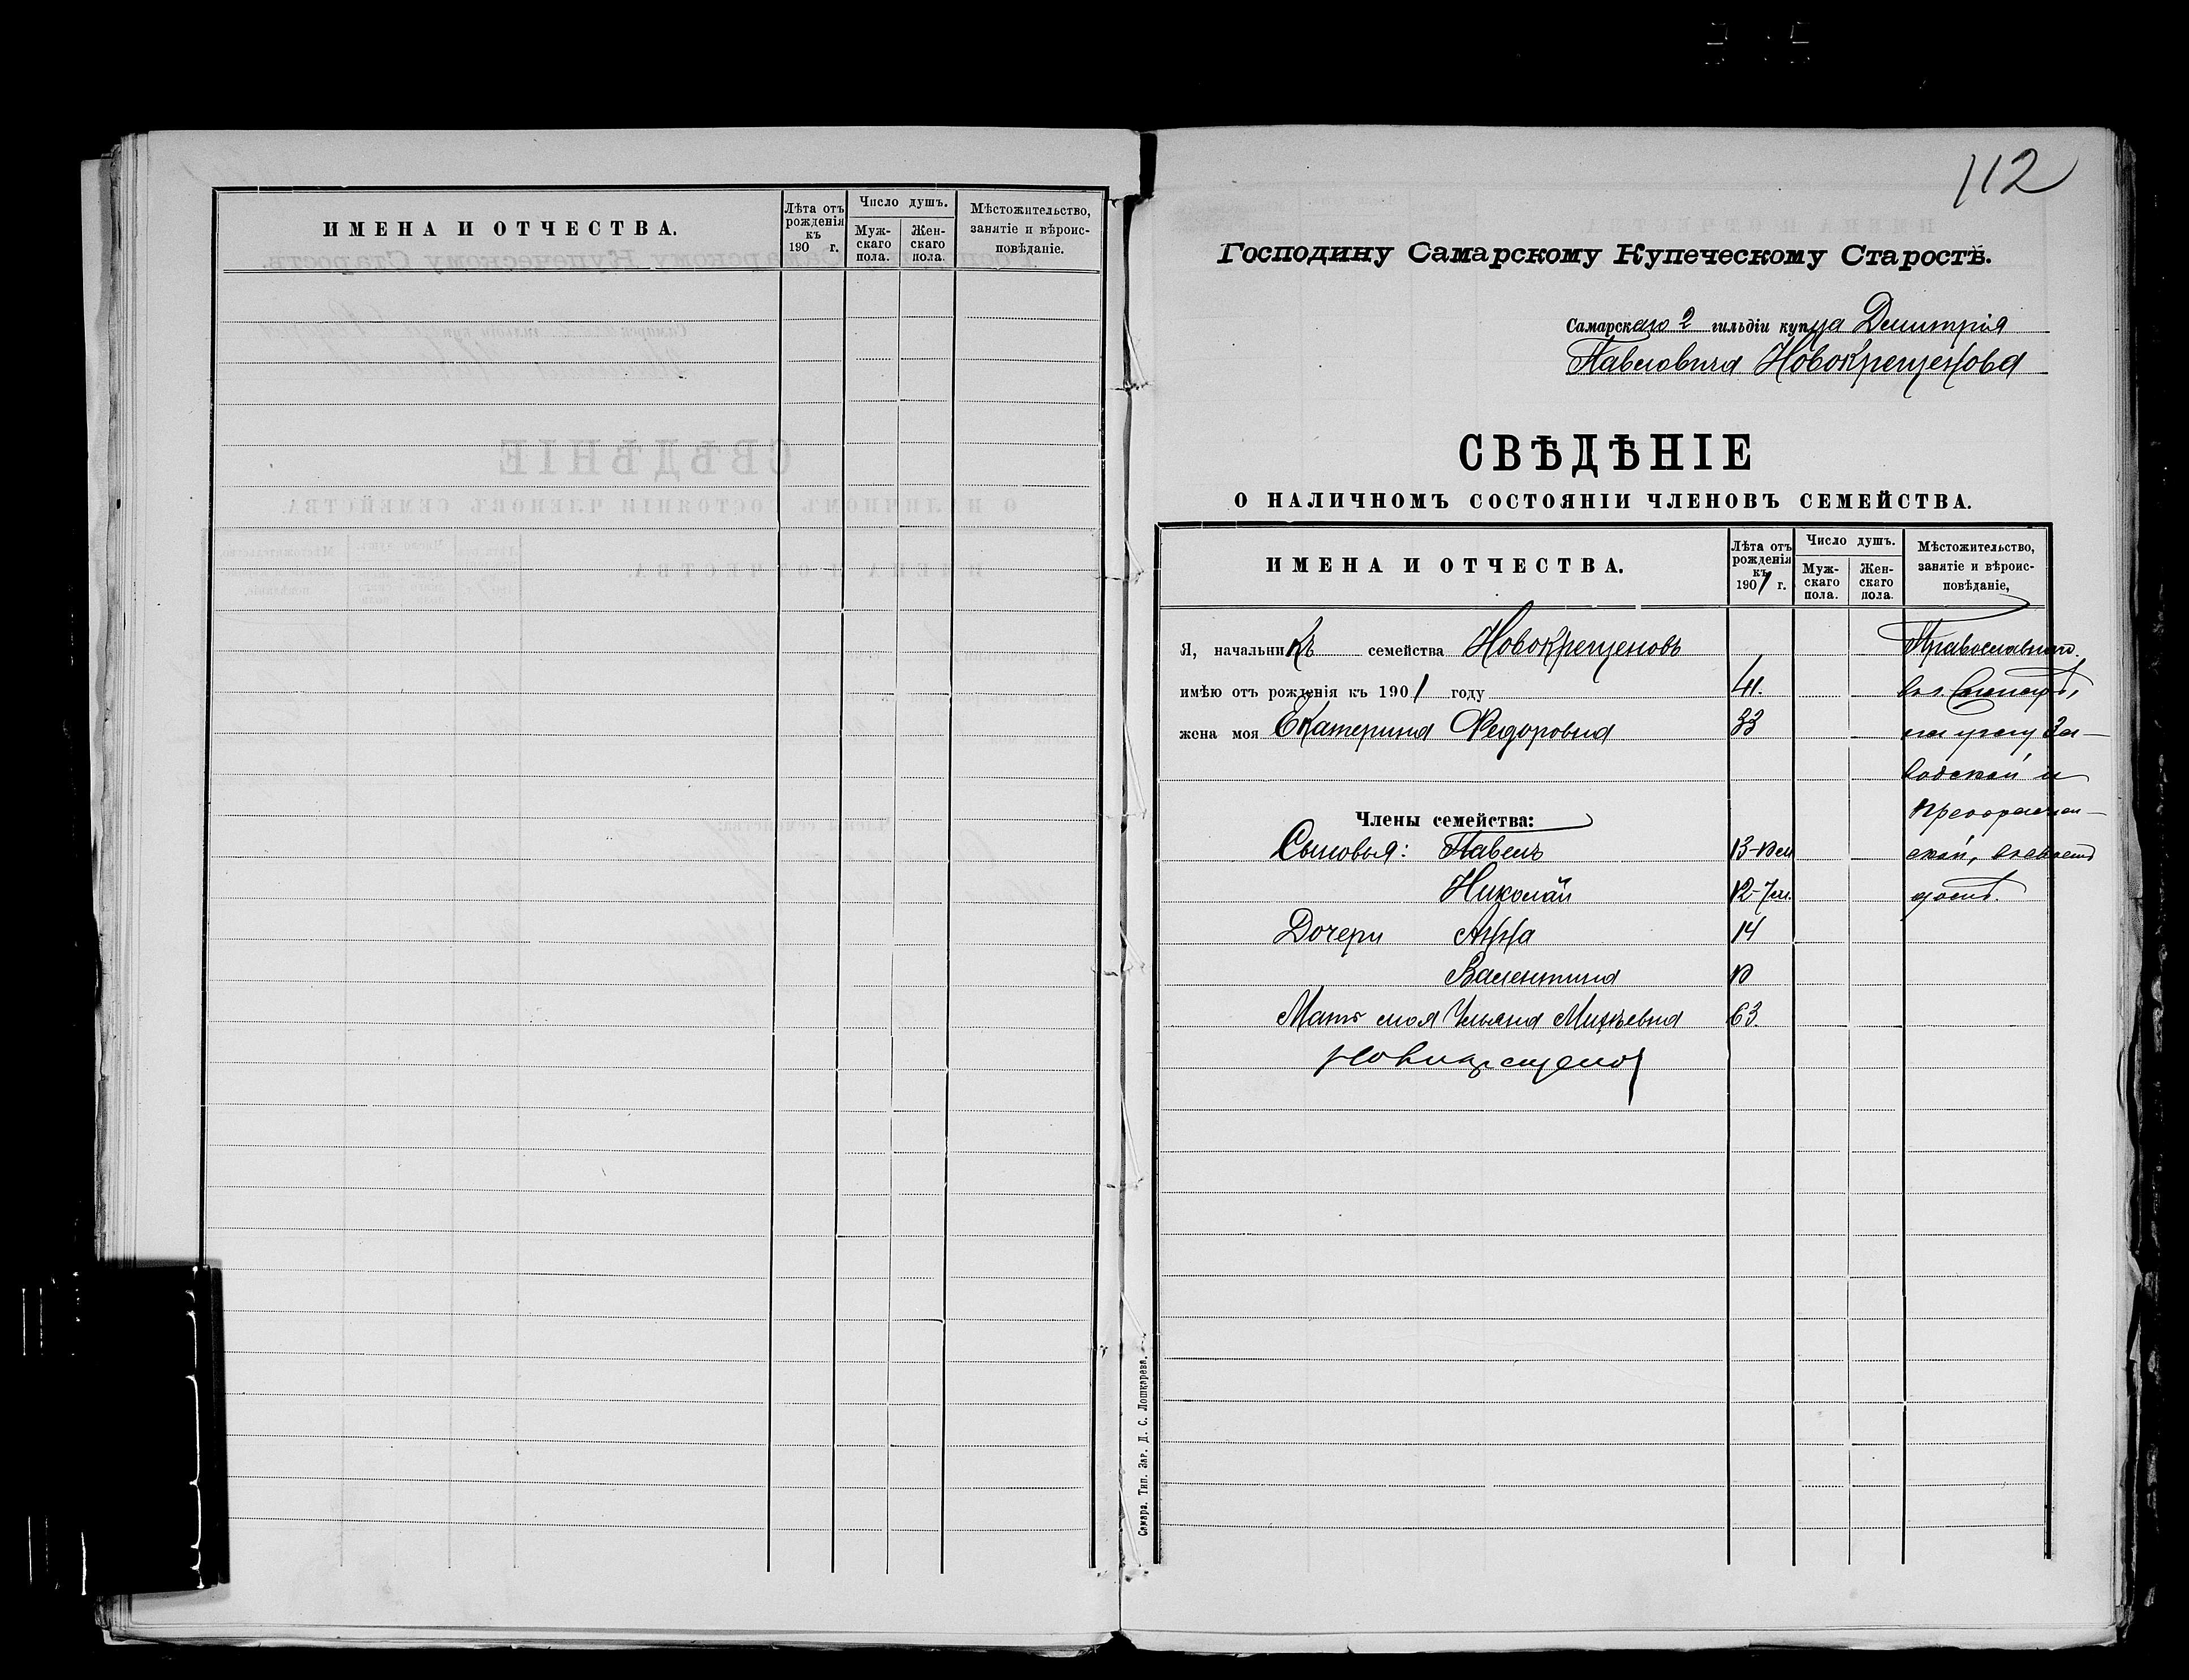 ИМЕНА И ОТЧЕСТВА.
Лѣта отъ рожденія къ 190 г.
Число душъ.
Муж-скаго пола.
Жен-скаго пола.
Мѣстожительство, занятіе и вѣроис-повѣданіе.
112
Господину Самарскому Купеческому Старостѣ.
Самарскаго 2 гильдіи купца Дмитрія
Павловича Новокрещенова
СВѢДѢНІЕ
О НАЛИЧНОМЪ СОСТОЯНІИ ЧЛЕНОВЪ СЕМЕЙСТВА.
ИМЕНА И ОТЧЕСТВА.
Лѣта отъ рожденія къ 1901 г.
Число душъ.
Муж-скаго пола.
Жен-скаго пола.
Мѣстожительство, занятіе и вѣроис-повѣданіе,
Я, начальникъ семейства Новокрещеновъ Православнаго.
имѣю отъ рожденія къ 1901 году 41.
жена моя Екатерина Федоровна 33 на углу За-
водской и
Члены семейства:
Сыновья: Павелъ 13 ской,
Николай 12-7м. домѣ.
Дочери Анна 14
Валентина
Мать моя Ульяна 63.
Самара. Тип. Зар. Д. С. Лошкарева.